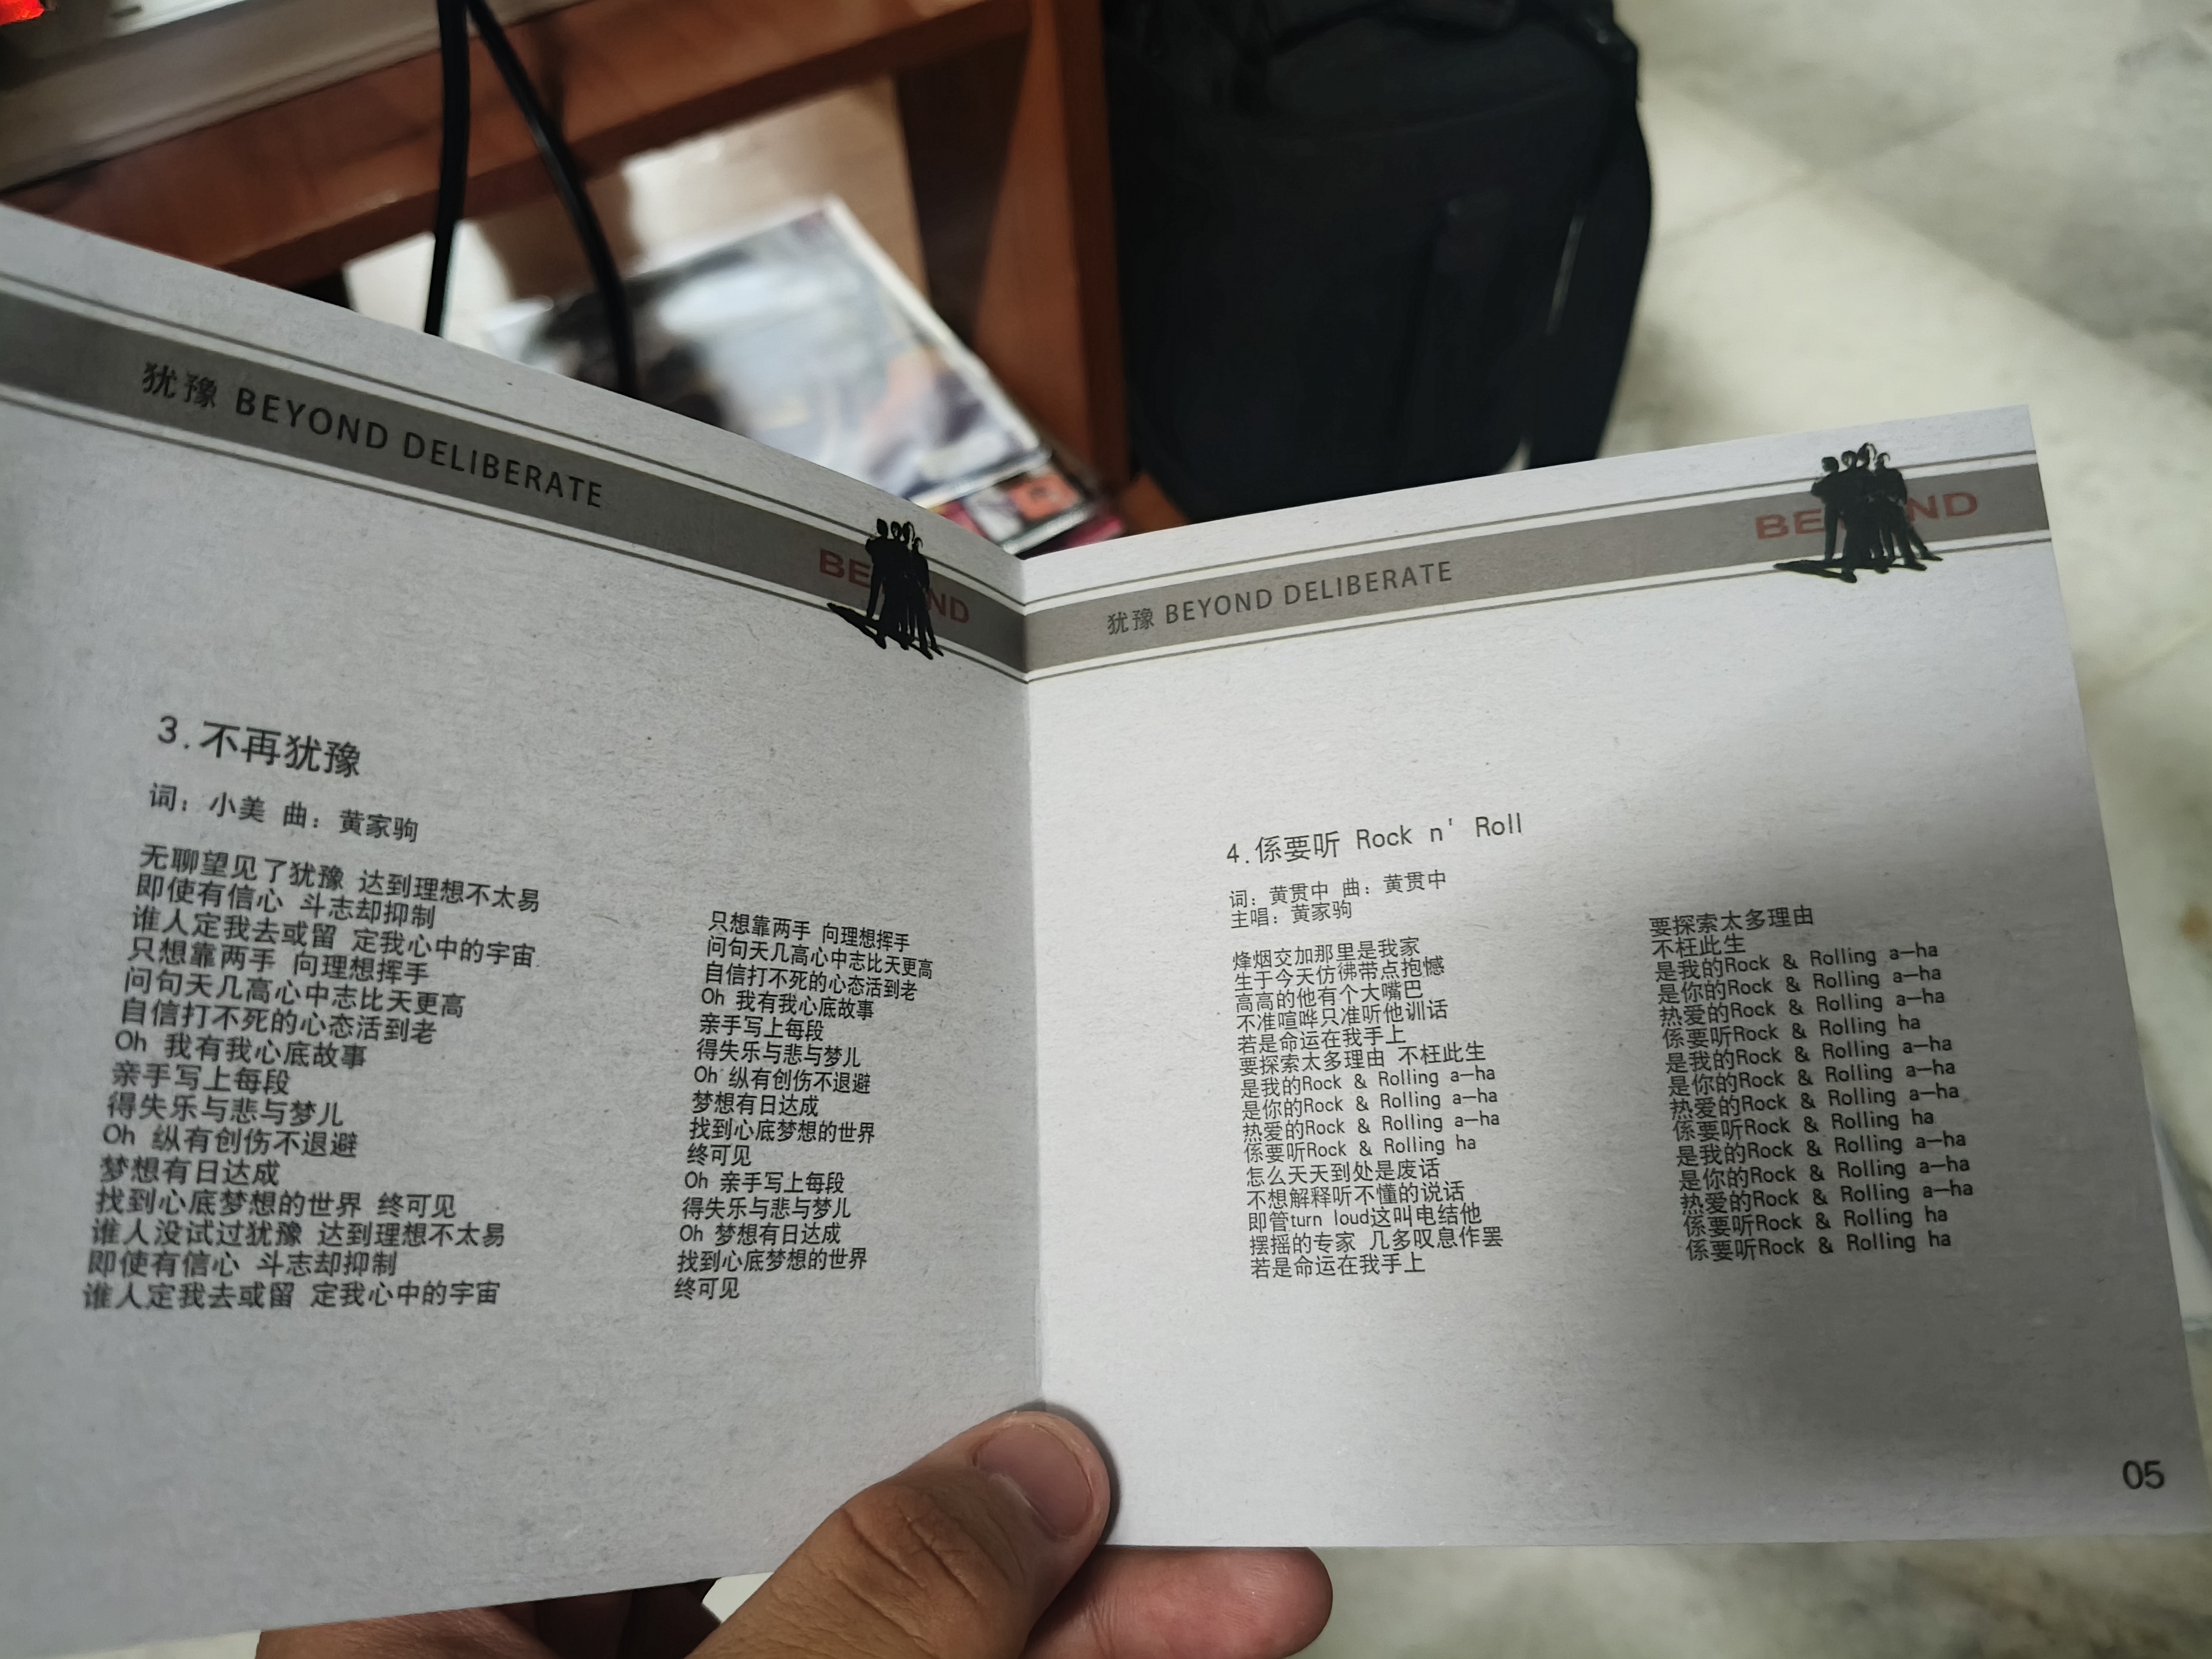 犹豫 BEYOND DELIBERATE
BEYOND
3.不再犹豫
词：小美 曲：黄家驹
无聊望见了犹豫 达到理想不太易
即使有信心 斗志却抑制
谁人定我去或留 定我心中的宇宙
只想靠两手 向理想挥手
问句天几高心中志比天更高
自信打不死的心态活到老
Oh 我有我心底故事
亲手写上每段
得失乐与悲与梦儿
Oh 纵有创伤不退避
梦想有日达成
找到心底梦想的世界 终可见
谁人没试过犹豫 达到理想不太易
即使有信心 斗志却抑制
谁人定我去或留 定我心中的宇宙
只想靠两手 向理想挥手
问句天几高心中志比天更高
自信打不死的心态活到老
Oh 我有我心底故事
亲手写上每段
得失乐与悲与梦儿
Oh 纵有创伤不退避
梦想有日达成
找到心底梦想的世界
终可见
Oh 亲手写上每段
得失乐与悲与梦儿
Oh 梦想有日达成
找到心底梦想的世界
终可见
犹豫 BEYOND DELIBERATE
BEYOND
4.係要听 Rock n' Roll
词：黄贯中 曲：黄贯中
主唱：黄家驹
烽烟交加那里是我家
生于今天仿彿带点抱憾
高高的他有个大嘴巴
不准喧哗只准听他训话
若是命运在我手上
要探索太多理由 不枉此生
是我的Rock & Rolling a—ha
是你的Rock & Rolling a—ha
热爱的Rock & Rolling a—ha
係要听Rock & Rolling ha
怎么天天到处是废话
不想解释听不懂的说话
即管turn loud这叫电结他
摆摇的专家 几多叹息作罢
若是命运在我手上
要探索太多理由
不枉此生
是我的Rock & Rolling a—ha
是你的Rock & Rolling a—ha
热爱的Rock & Rolling a—ha
係要听Rock & Rolling ha
是我的Rock & Rolling a—ha
是你的Rock & Rolling a—ha
热爱的Rock & Rolling a—ha
係要听Rock & Rolling ha
是我的Rock & Rolling a—ha
是你的Rock & Rolling a—ha
热爱的Rock & Rolling a—ha
係要听Rock & Rolling ha
係要听Rock & Rolling ha
05